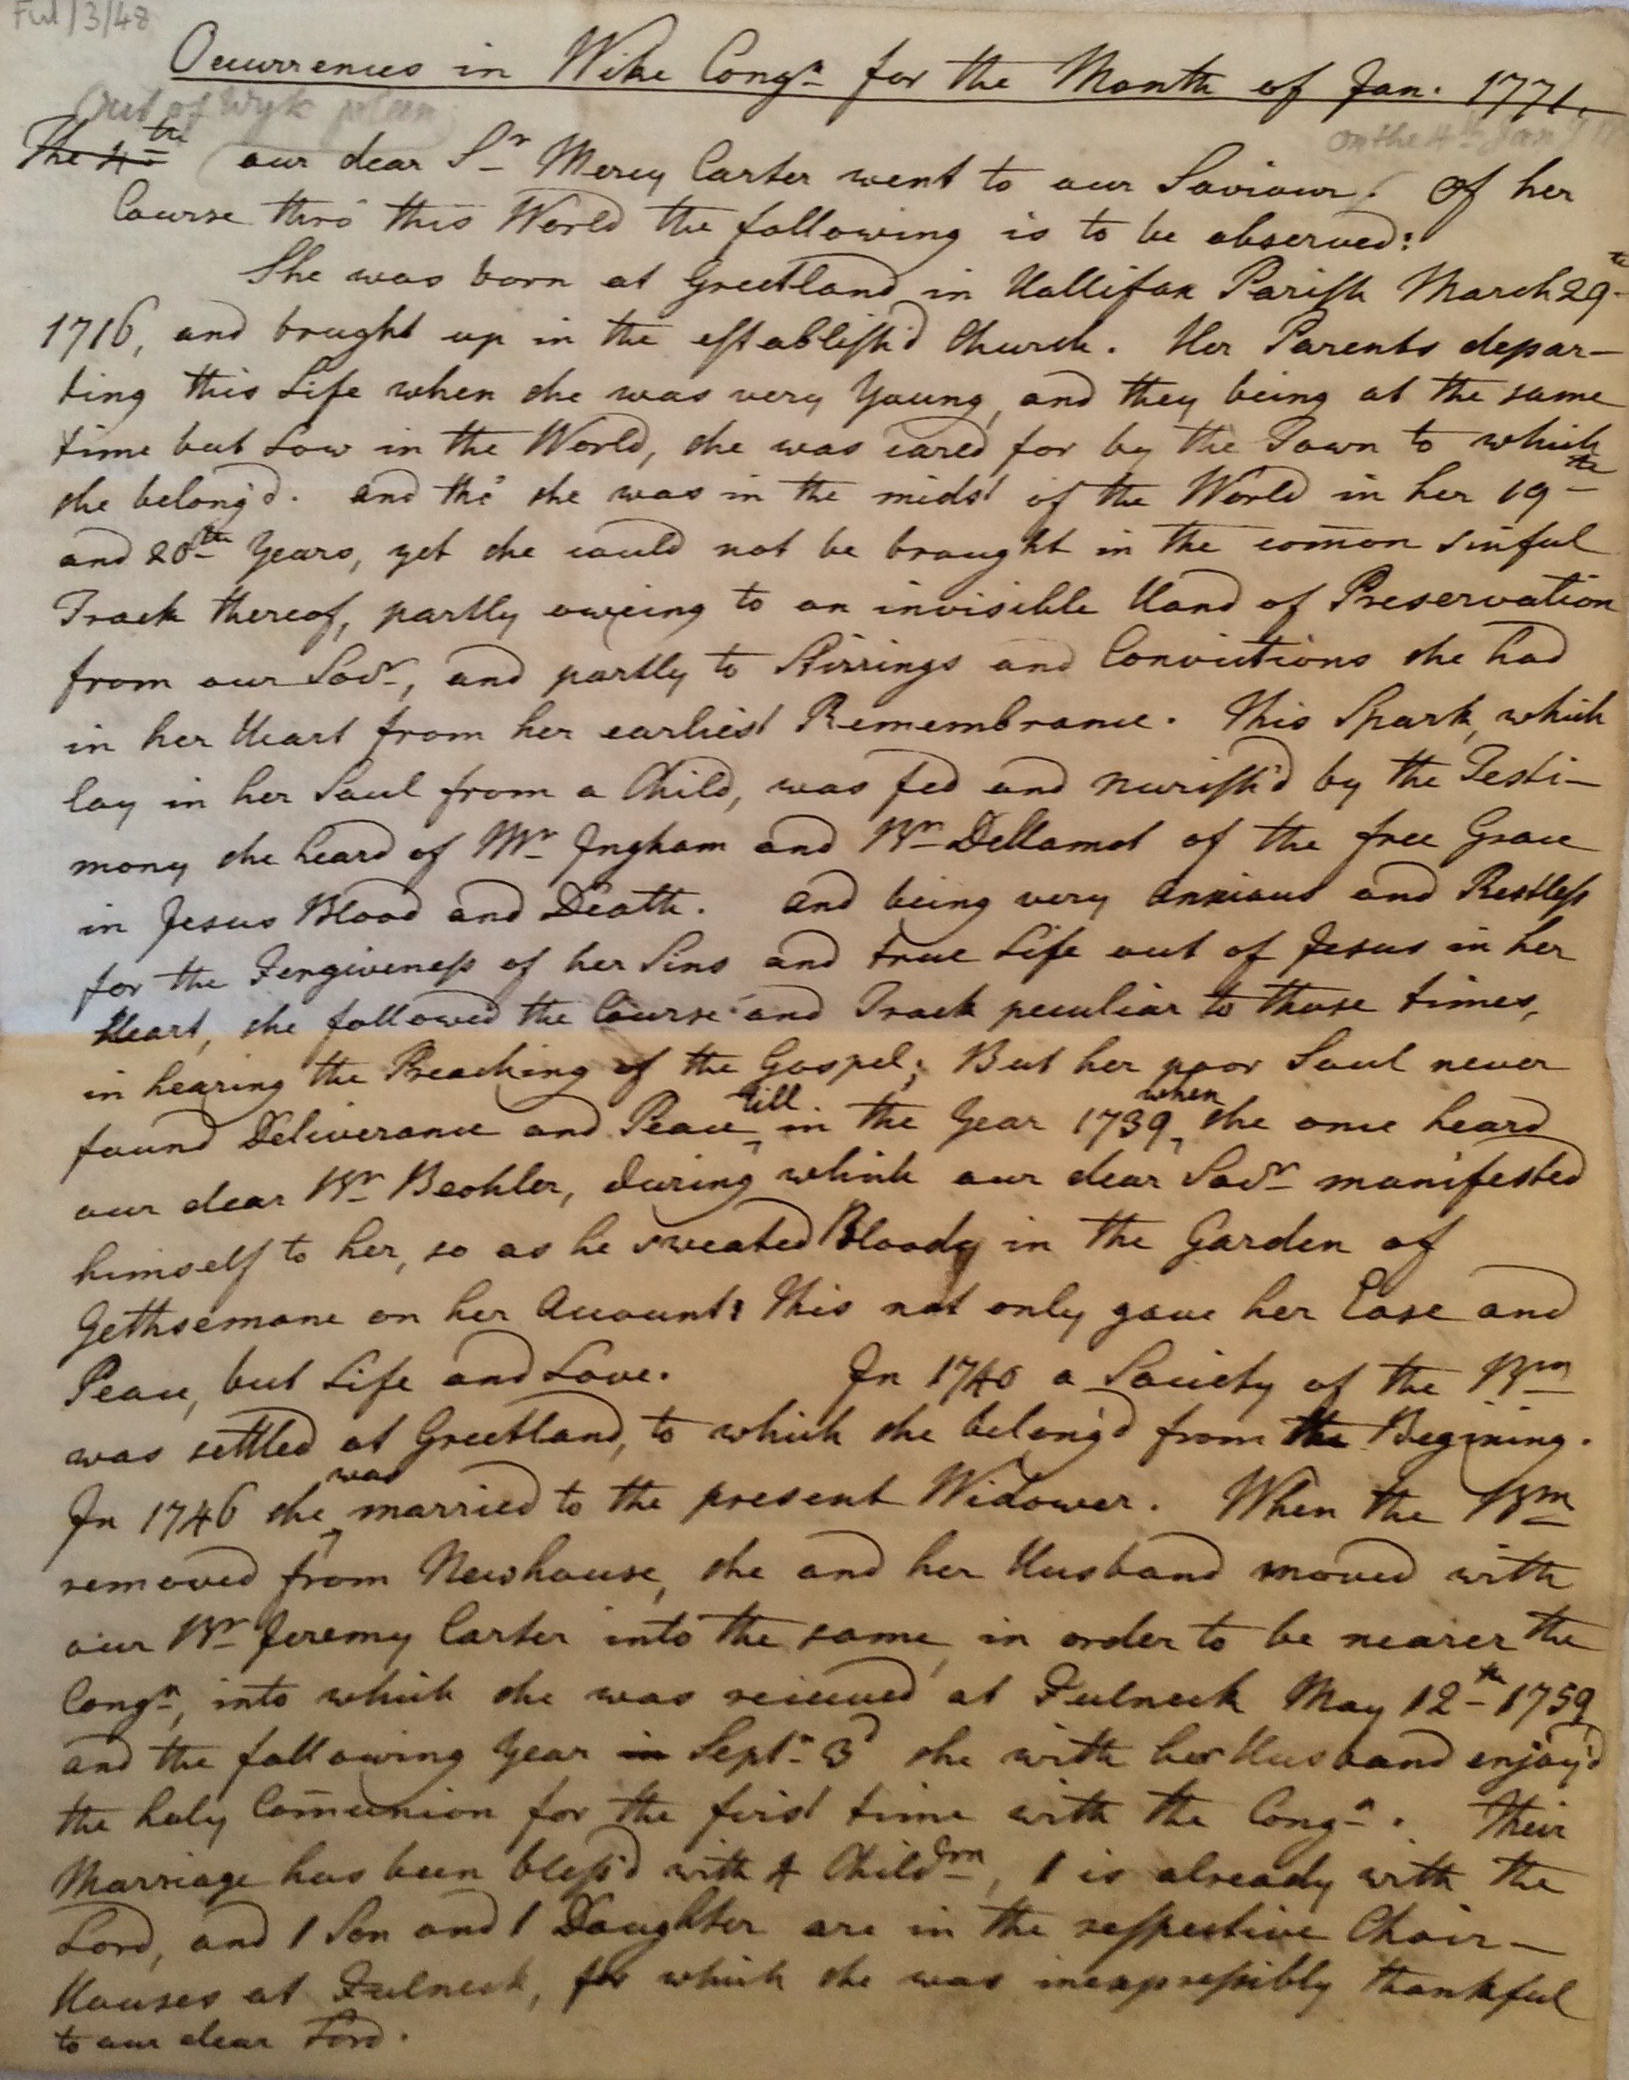 Ful/3/48
Occurrences in Wike Congn for the Month of Jan. 1771.
Out of Wyk
on the 4th Jan
The 4th our dear Sr Mercy Carter went to our Saviour. Of her
Course thro' this World the following is to be observed:
She was born at Greetland in Hallifax Parish March 29th
1716, and brought up in the establish'd Church. Her Parents depar-
ting this Life when she was very Young, and they being at the same
time but Low in the World, she was cared for by the Town to which
she belong'd. and tho' she was in the midst of the World in her 19th
and 20th Years, yet she could not be brought in the com̄on sinful
Track thereof, partly oweing to an invisible Hand of Preservation
from our Savr, and partly to Stirrings and Convictions she had
in her Heart from her earliest Remembrance. This Spark, which
lay in her Soul from a Child, was fed and nurish'd by the Testi-
mony she heard of Mr Ingham and Br Dellamot of the free Grace
in Jesus Blood and Death. and being very anxious and Restless
for the Forgiveness of her Sins and true Life out of Jesus in her
Heart, she followed the Course and Track peculiar to those times,
in hearing the Preaching of the Gospel; But her poor Soul never
found Deliverance and Peace till in the Year 1739, when she once heard
our dear Br Beohler, during which our dear Savr manifested
himself to her, so as he sweated Bloody in the Garden of
Gethsemane on her Account: This not only gave her Ease and
Peace, but Life and Love. In 1740 a Society of the Brn
was settled at Greetland, to which she belong'd from the Begining.
In 1746 she was married to the present Widower. When the Brn
removed from Newhouse, she and her Husband moved with
our Br Jeremy Carter into the same, in order to be nearer the
Congn, into which she was recieved at Fulneck May 12th 1759
and the following Year in Septr 3d she with her Husband enjoy'd
the holy Com̄union for the first time with the Congn. Their
Marriage has been bless'd with 4 Childrn, 1 is already with the
Lord, and 1 Son and 1 Daughter are in the respective Choir-
Houses at Fulneck, for which she was inexpressibly thankful
to our dear Lord.